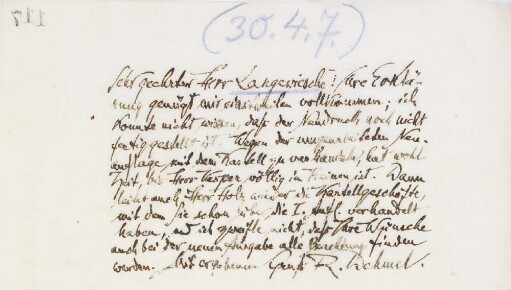 117
(30.4.7.)
Sehr geehrter Herr Langewiesche! Ihre Erklä-
rung genügt mir einstweilen vollkommen; ich
konnte nicht wissen, daß der Neudruck noch nicht
fertiggestellt ist. Wegen der umgearbeiteten Neu-
auflage mit dem Kartell zu verhandeln, hat wohl
Zeit, bis Herr völlig im Reinen ist. Dann
leitet auch Herr Holz wieder die Kartellgeschäfte
mit dem Sie schon über die I. Aufl. verhandelt
haben, und ich zweifle nicht, daß Ihre Wünsche
auch bei der neuen Ausgabe alle Beachtung finden
werden. Mit ergebenem Gruß R. Dehmel.